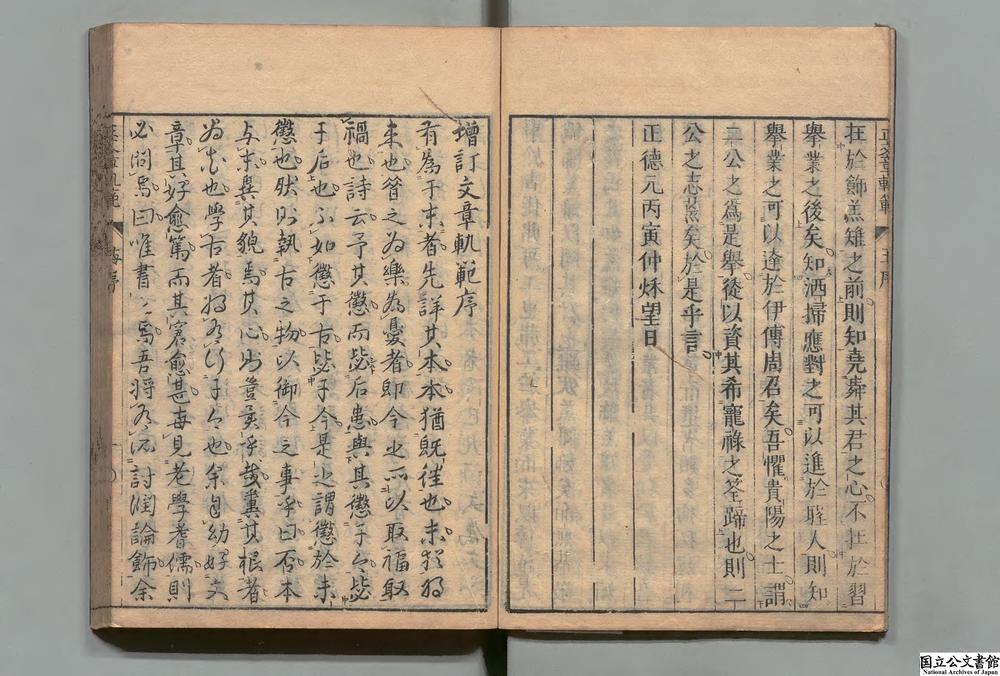 在於飾羔雉之前則知堯舜其君之心不在於習
舉業之後矣知洒掃應對之可以進於聖人則知
舉業之可以達於伊傅周召矣吾懼貴陽之士謂
二公之為是舉徒以資其希寵祿之筌蹄也則二
公之志荒矣於是乎言
正德元丙寅仲秋望日
增訂文章軌範序
有為于末者先詳其本本猶既往也末猶将
來也簪之為樂為憂者即今之所以取福取
禍也詩云予其懲而毖后患與其懲于今毖
于后也不如懲于古毖于今是之謂懲於未
懲也然則執古之物以御今之事乎曰否本
与末異其貌焉其心
為志也學古者将為行于今也余自幼好文
章其好愈篤而其窘愈甚每見老學耆儒則
必問焉曰唯書焉吾将為討潤論飾余
國立公文書館
National Archives of Japan